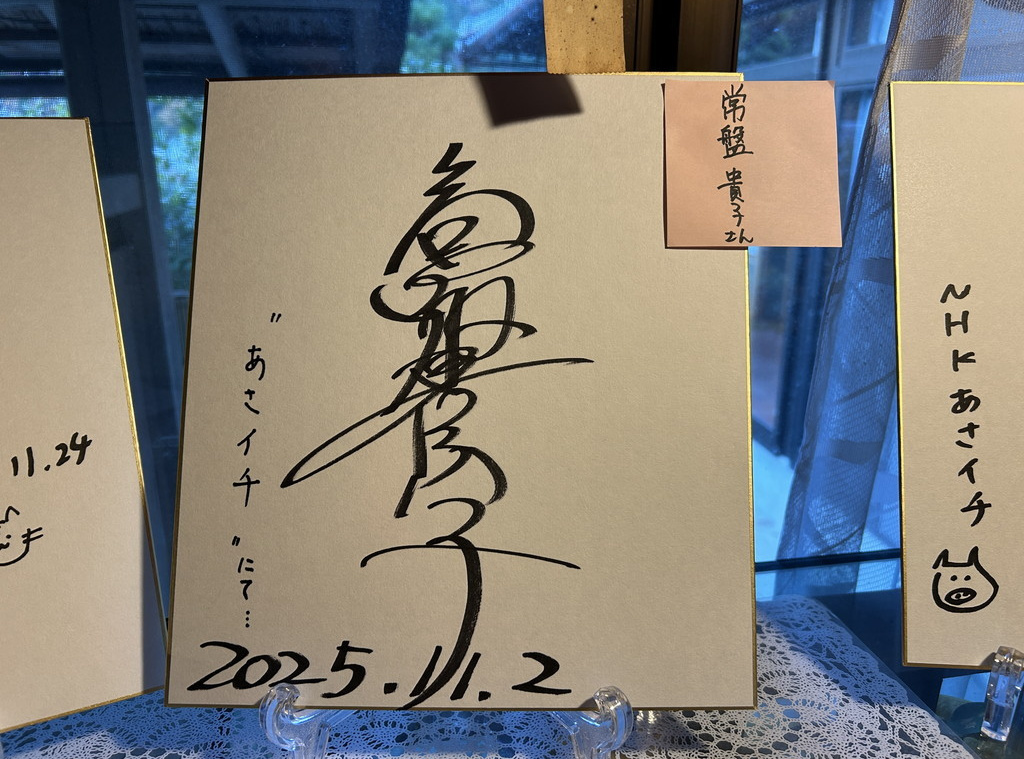 11.24
常盤貴子
"あさイチ"にて…
2025.11.2
常盤 貴子さん
NHKあさイチ